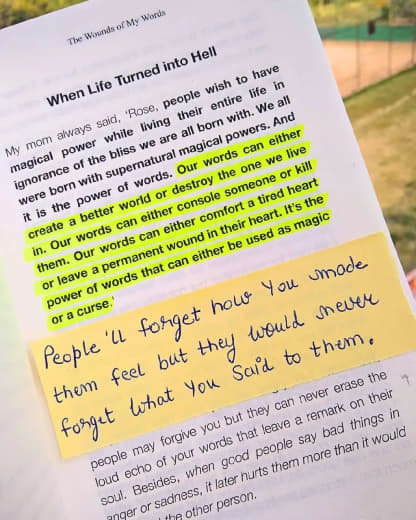 The Wounds of My Words
When Life Turned into Hell
My mom always said, 'Rose, people wish to have
magical power while living their entire life in
ignorance of the bliss we are all born with. We all
were born with supernatural magical powers. And
it is the power of words. Our words can either
create a better world or destroy the one we live
in. Our words can either console someone or kill
them. Our words can either comfort a tired heart
or leave a permanent wound in their heart. It's the
power of words that can either be used as magic
or a curse.'
People 'll forget how You made
them feel but they would never
forget what You Said to them.
people may forgive you but they can never erase the
loud echo of your words that leave a remark on their
soul. Besides, when good people say bad things in
anger or sadness, it later hurts them more than it would
the other person.